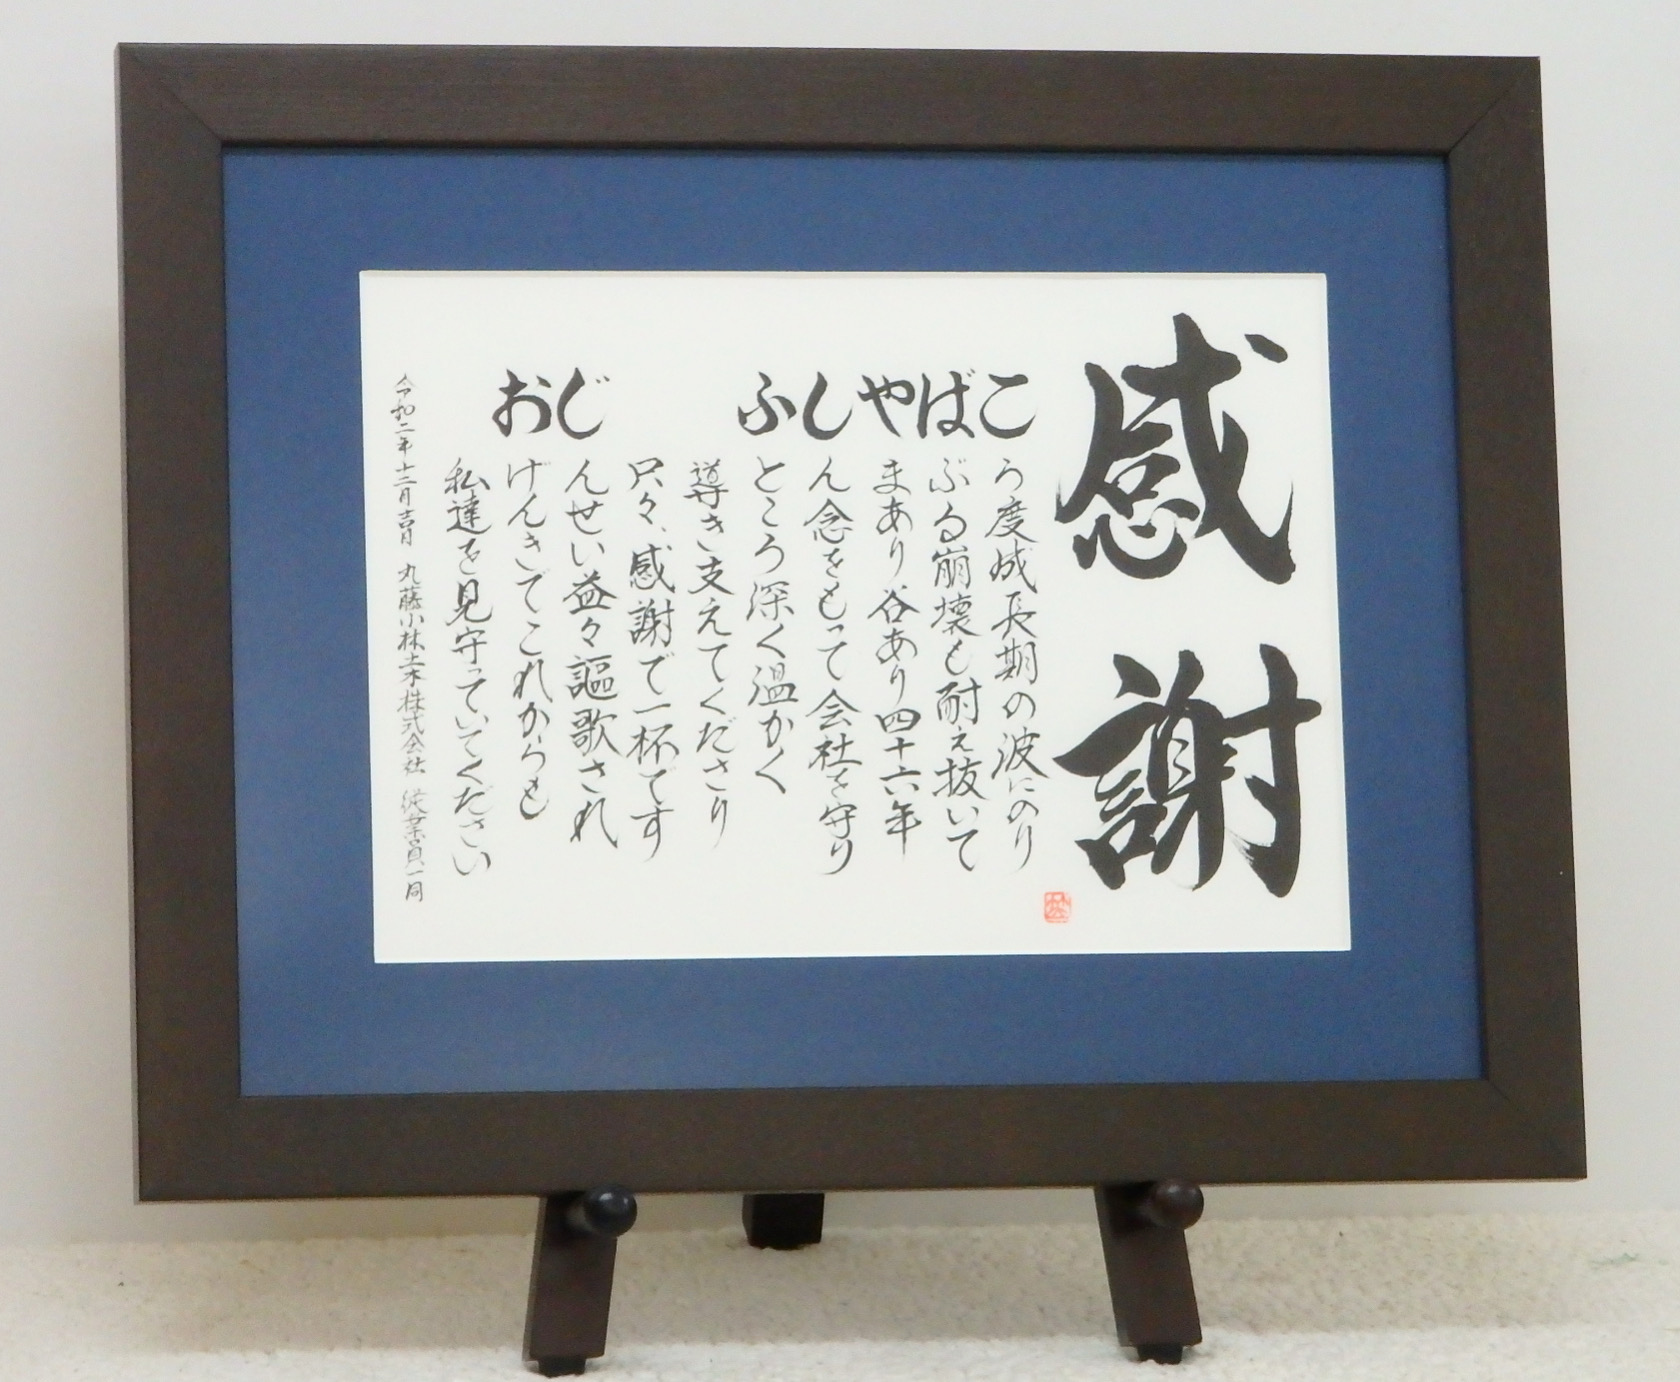 感謝
こう度成長期の波にのり
ばぶる崩壊も耐え抜いて
やまあり谷あり四十六年
しん念をもって会社を守り
ふところ深く温かく
導き支えてくださり
只々、感謝で一杯です
じんせい益々謳歌され
おげんきでこれからも
私達を見守っていてください
令和二年十二月吉日 丸藤小林土木株式会社 従業員一同